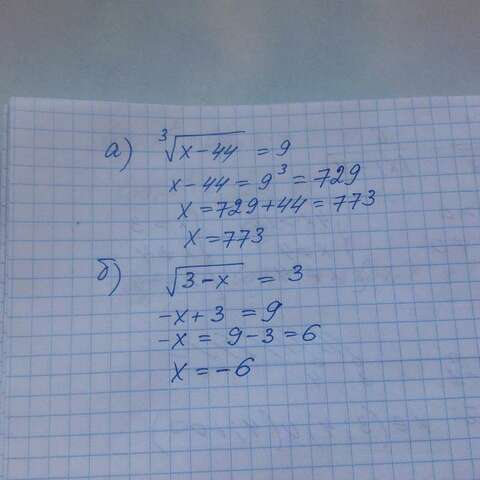 а) ∛(x-44) = 9
x-44 = 9³ = 729
x = 729+44 = 773
x = 773
б) √(3-x) = 3
-x+3 = 9
-x = 9-3 = 6
x = -6